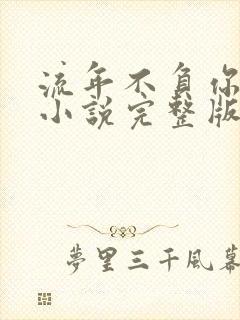 流年不負你
小說完整版
夢里三千風幕